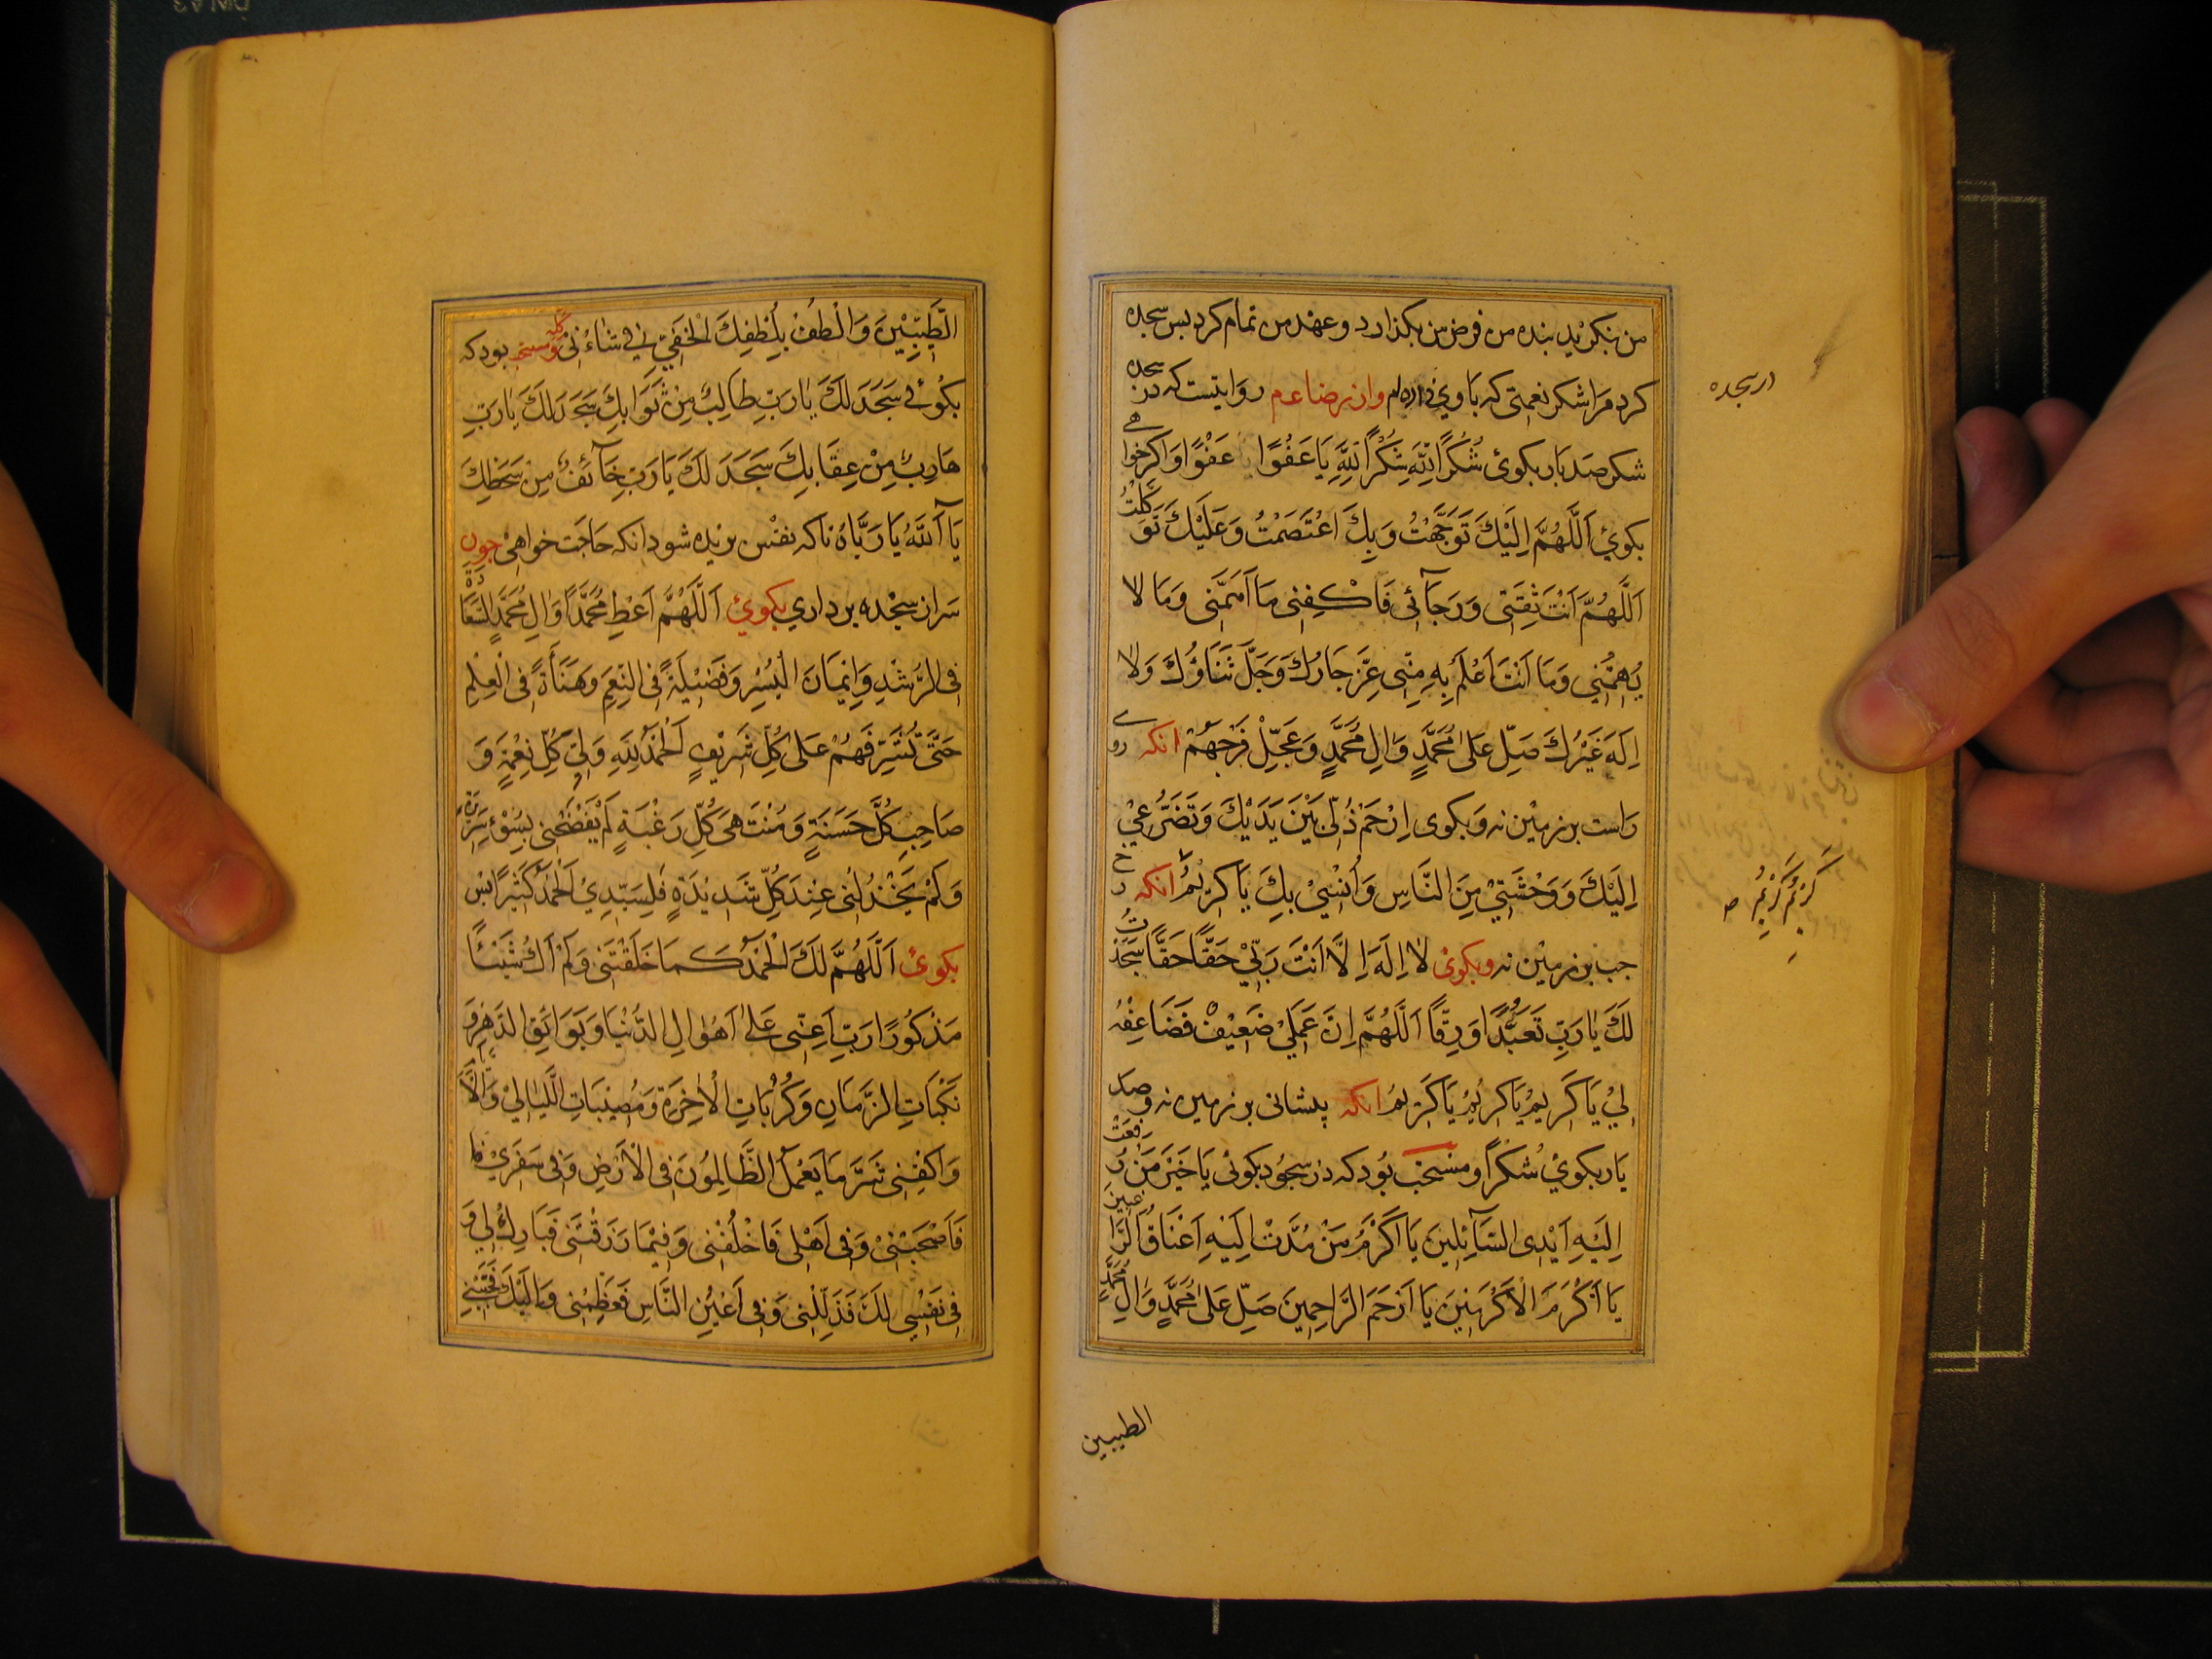 من بنکرید بنده من فرض من بکذارد و عهد من تمام کرد بس سجده
کرد مرا شکر نعمتی که با وی داده ام وازرضا عم روایتست که در سجده
شکر صد بار بکوئ شُكْرًا لِلَّهِ شُكْرًا لِلَّهِ يَا عَفُوًا عَفْوًا وَاکرخواهی
بکوئ اَللَّهُمَّ اِلَيْكَ تَوَجَّهْتُ وَبِكَ اعْتَصَمْتُ وَعَلَيْكَ تَوَكَّلْتُ
اَللَّهُمَّ اَنْتَ ثِقَتِي وَرَجَآئِي فَاكْفِنِي مَا اَهَمَّنِي وَمَا لَا
يُهِمُّنِي وَمَا اَنْتَ اَعْلَمُ بِهِ مِنِّي عَزَّ جَارُكَ وَجَلَّ ثَنَاؤُكَ وَلَا
اِلَهَ غَيْرُكَ صَلِّ عَلَى مُحَمَّدٍ وَالِ مُحَمَّدٍ وَعَجِّلْ فَرَجَهُمْ انکه روی
راست بر زمین نه و بکوی اِرْحَمْ ذُلِّي بَيْنَ يَدَيْكَ وَتَضَرُّعِي
اِلَيْكَ وَوَحْشَتِي مِنَ النَّاسِ وَاُنْسِي بِكَ يَا كَرِيمُ انکه رخ
جب بر زمین نه وبکوئ لَا اِلَهَ اِلَّا اَنْتَ رَبِّي حَقًّا حَقًّا سَجَدْتُ
لَكَ يَا رَبِّ تَعَبُّدًا وَرِقًّا اَللَّهُمَّ اِنَّ عَمَلِي ضَعِيفٌ فَضَاعِفْهُ
لِي يَا كَرِيمُ يَا كَرِيمُ يَا كَرِيمُ انکه پیشانی بر زمین نه وصد
بار بکوئ شُكْرًا و مستحب بود که در سجود بکوئی يَا خَيْرَ مَنْ رُفِعَتْ
اِلَيْهِ اَيْدِي السَّآئِلِينَ يَا اَكْرَمَ مَنْ مُدَّتْ اِلَيْهِ اَعْنَاقُ الرَّاغِبِينَ
يَا اَكْرَمَ الْاَكْرَمِينَ يَا اَرْحَمَ الرَّاحِمِينَ صَلِّ عَلَى مُحَمَّدٍ وَالِ مُحَمَّدٍ
الطیبین
از سجده
كَرِيمُ كَرِيمُ
الطَّيِّبِينَ وَالْطُفْ بِلُطْفِكَ الْخَفِيِّ فِي شَاْنِي کله ومستحب بود که
بکوئی سَجَدَ لَكَ يَا رَبِّ طَالِبٌ مِنْ ثَوَابِكَ سَجَدَ لَكَ يَا رَبِّ
هَارِبٌ مِنْ عِقَابِكَ سَجَدَ لَكَ يَا رَبِّ خَآئِفٌ مِنْ سَخَطِكَ
يَا اَللَّهُ يَا رَبَّاهُ تاکه نفس بریده شود انکه حاجت خواهی چون
سراز سجده برداری بکوئ اَللَّهُمَّ اَعْطِ مُحَمَّدًا وَالِ مُحَمَّدٍ السَّعَادَةَ
فِي الرُّشْدِ وَاِيمَانَ الْيُسْرِ وَفَضِيلَةً فِي النِّعَمِ وَهَنَاءَةً فِي الْعِلْمِ
حَتَّى تُشَرِّفَهُمْ عَلَى كُلِّ شَرِيفٍ اَلْحَمْدُ لِلَّهِ وَلِيِّ كُلِّ نِعْمَةٍ وَ
صَاحِبِ كُلِّ حَسَنَةٍ وَمُنْتَهَى كُلِّ رَغْبَةٍ لَمْ يَفْضَحْنِي بِسُوْءِ سَرِيرَةٍ
وَلَمْ يَخْذُلْنِي عِنْدَ كُلِّ شَدِيدَةٍ فَلِسَيِّدِي الْحَمْدُ كَثِيرًا بس
بکوئ اَللَّهُمَّ لَكَ الْحَمْدُ كَمَا خَلَقْتَنِي وَلَمْ اَكُ شَيْئًا
مَذْكُورًا رَبِّ اَعِنِّي عَلَى اَهْوَالِ الدُّنْيَا وَبَوَائِقِ الدَّهْرِ وَ
نَكَبَاتِ الزَّمَانِ وَكُرُبَاتِ الْاخِرَةِ وَمُصِيبَاتِ اللَّيَالِي وَالْاَيَّامِ
وَاكْفِنِي شَرَّ مَا يَعْمَلُ الظَّالِمُونَ فِي الْاَرْضِ وَفِي سَفَرِي
فَاصْحَبْنِي وَفِي اَهْلِي فَاخْلُفْنِي وَفِيمَا رَزَقْتَنِي فَبَارِكْ لِي وَ
فِي نَفْسِي لَكَ فَذَلِّلْنِي وَفِي اَعْيُنِ النَّاسِ فَعَظِّمْنِي وَاِلَيْكَ فَحَبِّبْنِي